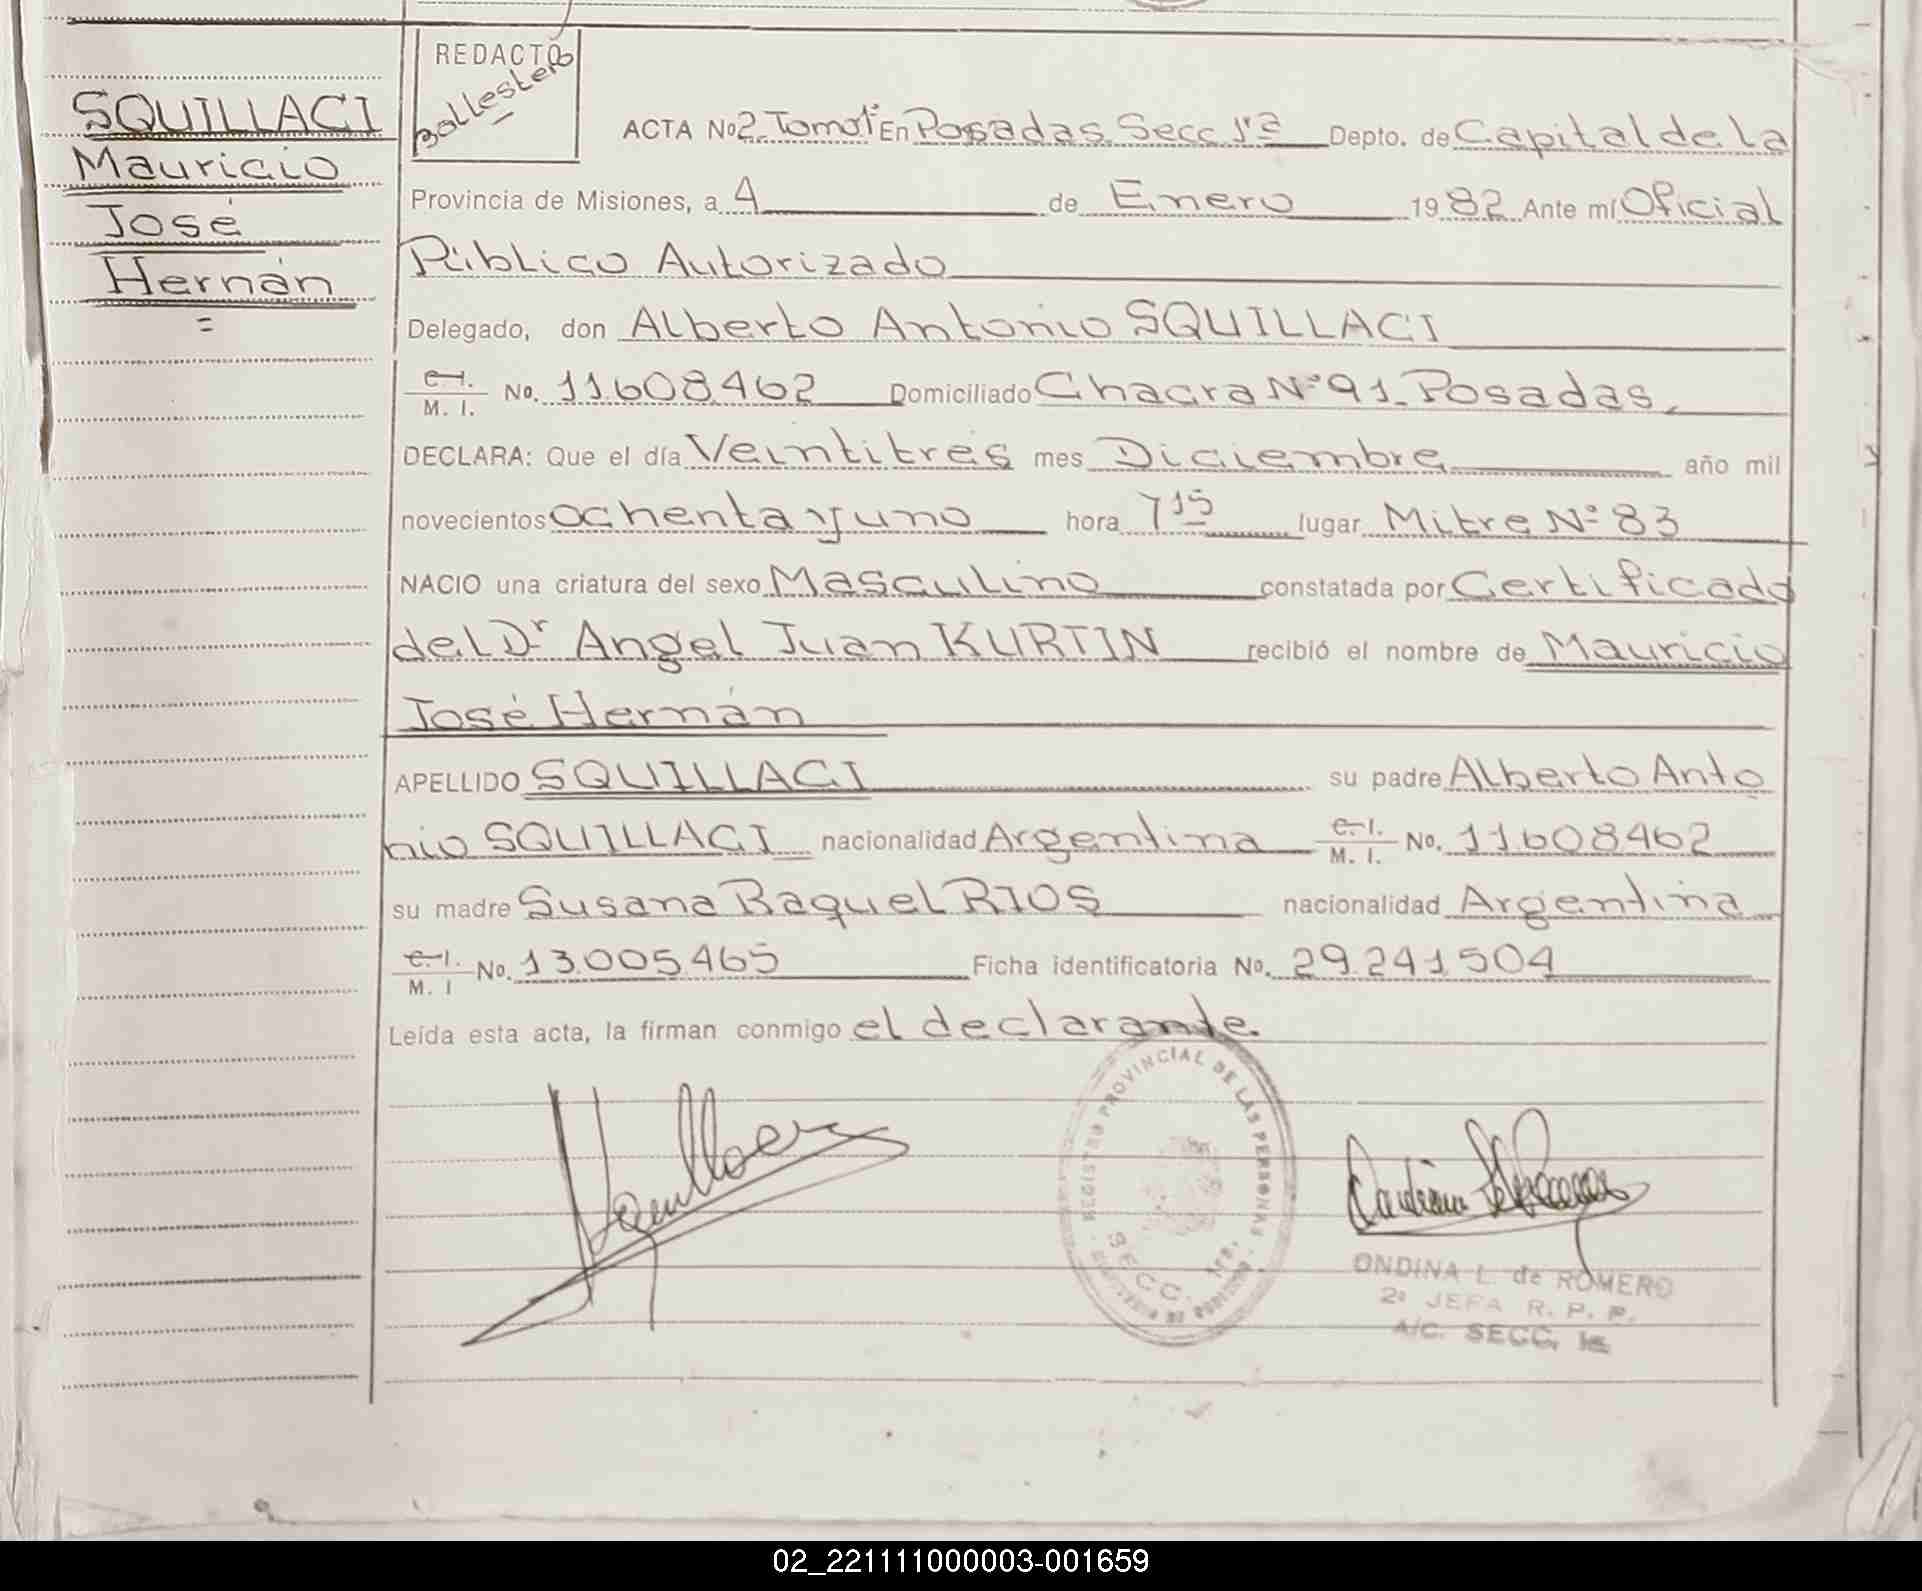 REDACTÓ
Ballestero
SQUILLACI
Mauricio
José
Hernán
=
ACTA No 2 Tomo 1° En Posadas Secc 1ra Depto. de Capital de la
Provincia de Misiones, a 4 de Enero 1982 Ante mí Oficial
Público Autorizado
Delegado, don Alberto Antonio SQUILLACI
C. I. / M. I. No. 11.608.462 Domiciliado Chacra N° 91 - Posadas.
DECLARA: Que el día Veintitrés mes Diciembre año mil
novecientos ochenta y uno hora 7 15 lugar Mitre N° 83
NACIO una criatura del sexo Masculino constatada por Certificado
del Dr Angel Juan KURTIN recibió el nombre de Mauricio
José Hernán
APELLIDO SQUILLACI su padre Alberto Anto
nio SQUILLACI nacionalidad Argentina C. I. / M. I. No. 11.608.462
su madre Susana Raquel RIOS nacionalidad Argentina
C. I. / M. I No. 13.005.465 Ficha identificatoria No. 29.241.504
Leída esta acta, la firman conmigo el declarante.
REGISTRO PROVINCIAL DE LAS PERSONAS
SECC. 1ra.
ONDINA L. de ROMERO
2a JEFA R. P. P.
A/C. SECC. 1a
02_221111000003-001659